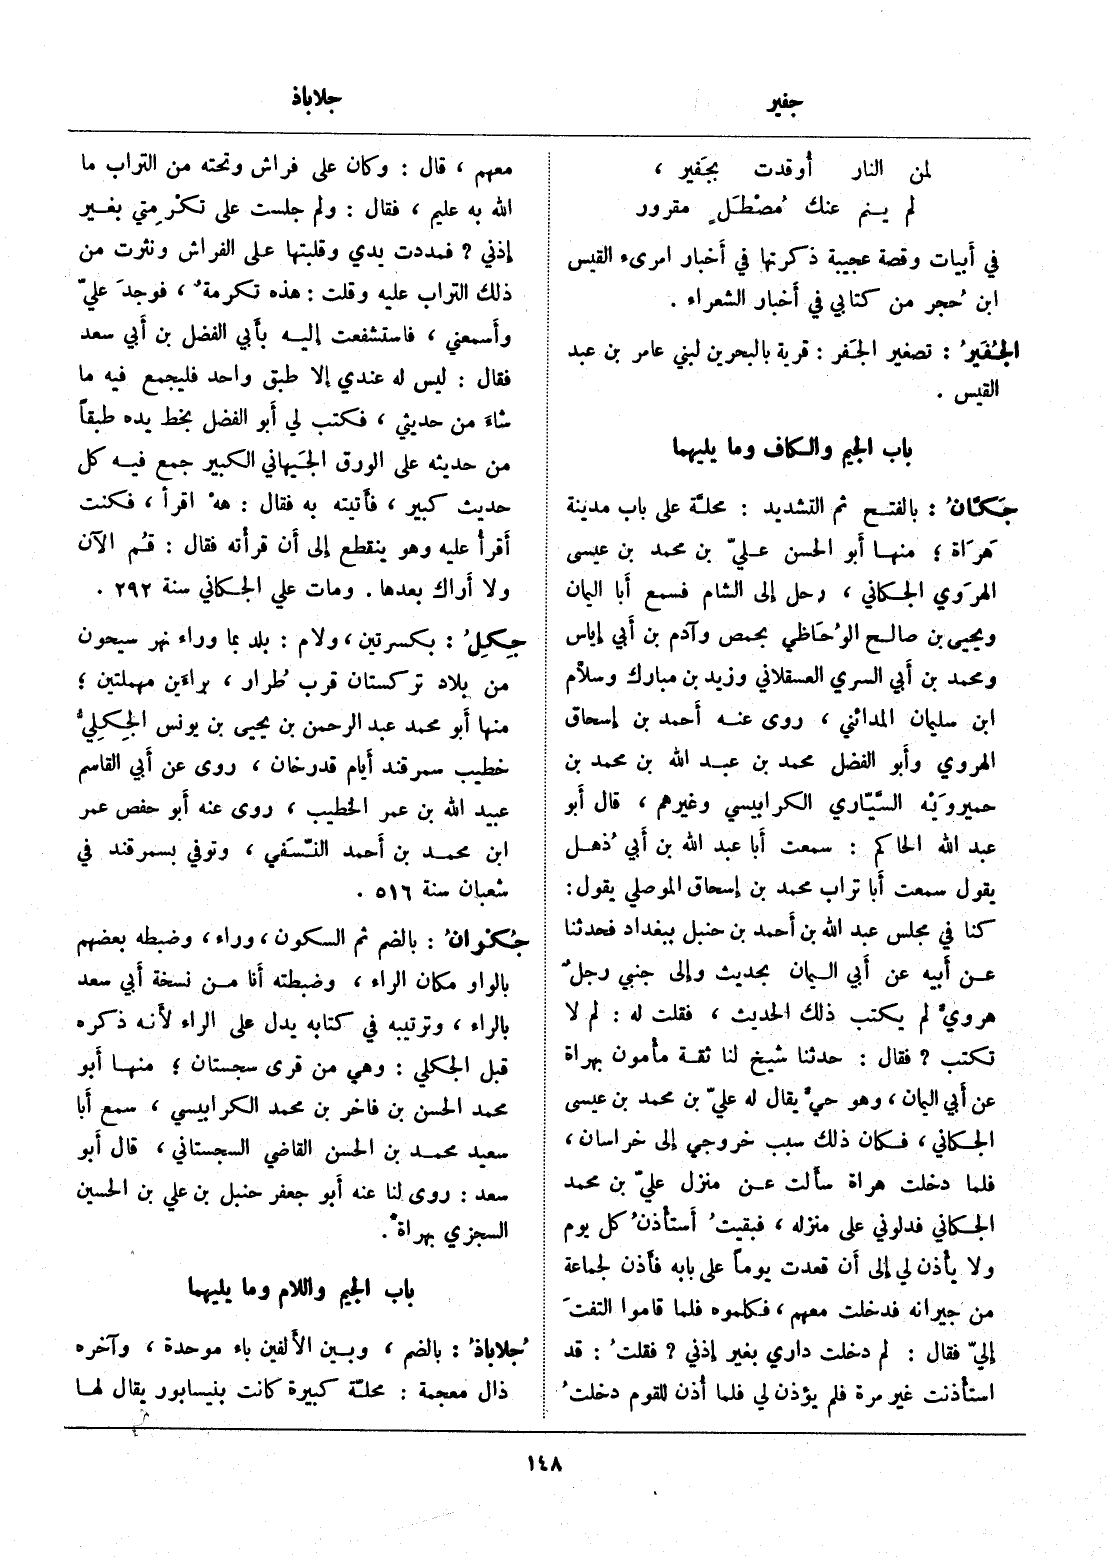 جفير
جلاباذ
لمن النار أوقدت بجَفير ،
لم ينم عنك مُصْطَلٍ مقرور
في أبيات وقصة عجيبة ذكرتها في أخبار امرىء القيس
ابن حُجر من كتابي في أخبار الشعراء .
الجُفَيرُ : تصغير الجَفر : قرية بالبحرين لبني عامر بن عبد
القيس .
باب الجيم والكاف وما يليهما
جَكَّانُ : بالفتح ثم التشديد : محلة على باب مدينة
هَرَاة ؛ منها أبو الحسن عليّ بن محمد بن عيسى
الهرَوي الجكاني ، رحل إلى الشام فسمع أبا اليمان
ويحيى بن صالح الوُحَاظي بحمص وآدم بن أبي إياس
ومحمد بن أبي السري العسقلاني وزيد بن مبارك وسلاَّم
ابن سليمان المدائني ، روى عنه أحمد بن إسحاق
الهروي وأبو الفضل محمد بن عبد الله بن محمد بن
حميروَيْه السَّيّاري الكرابيسي وغيرهم ، قال أبو
عبد الله الحاكم : سمعت أبا عبد الله بن أبي ذُهل
يقول سمعت أبا تراب محمد بن إسحاق الموصلي يقول :
كنا في مجلس عبد الله بن أحمد بن حنبل ببغداد فحدثنا
عن أبيه عن أبي اليمان بحديث وإلى جنبي رجلٌ
هرويٌّ لم يكتب ذلك الحديث ، فقلت له : لم لا
تكتب ? فقال : حدثنا شيخ لنا ثقة مأمون بهراة
عن أبي اليمان ، وهو حيٌّ يقال له عليّ بن محمد بن عيسى
الجكاني ، فكان ذلك سبب خروجي إلى خراسان ،
فلما دخلت هراة سألت عن منزل عليّ بن محمد
الجكاني فدلوني على منزله ، فبقيتُ أستأذنُ كل يوم
ولا يأذن لي إلى أن قعدت يوماً على بابه فأذن لجماعة
من جيرانه فدخلت معهم ، فكلموه فلما قاموا التفتَ
إليّ فقال : لم دخلت داري بغير إذني ? فقلتُ : قد
استأذنت غير مرة فلم يؤذن لي فلما أذن للقوم دخلتُ
معهم ، قال : وكان على فراش وتحته من التراب ما
الله به عليم ، فقال : ولم جلست على تكرِمتي بغير
إذني ? فمددت يدي وقلبتها على الفراش ونثرت من
ذلك التراب عليه وقلت : هذه تكرمةٌ ، فوجدَ عليّ
وأسمعني ، فاستشفعت إليه بأبي الفضل بن أبي سعد
فقال : ليس له عندي إلا طبق واحد فليجمع فيه ما
شاءَ من حديثي ، فكتب لي أبو الفضل بخط يده طبقاً
من حديثه على الورق الجَيهاني الكبير جمع فيه كل
حديث كبير ، فأتيته به فقال : ههْ اقرأ ، فكنت
أقرأ عليه وهو ينقطع إلى أن قرأته فقال : قُم الآن
ولا أراك بعدها . ومات علي الجكاني سنة ٢٩٢ .
جِكِلُ : بكسرتين ، ولام : بلد بما وراء نهر سيحون
من بلاد تركستان قرب طُرار ، براءَين مهملتين ؛
منها أبو محمد عبد الرحمن بن يحيى بن يونس الجِكِليُّ
خطيب سمرقند أيام قدرخان ، روى عن أبي القاسم
عبيد الله بن عمر الخطيب ، روى عنه أبو حفص عمر
ابن محمد بن أحمد النَّسَفي ، وتوفي بسمرقند في
شعبان سنة ٥١٦ .
جُكْوانُ : بالضم ثم السكون ، وراء ، وضبطه بعضهم
بالواو مكان الراء ، وضبطته أنا من نسخة أبي سعد
بالراء ، وترتيبه في كتابه يدل على الراء لأنه ذكره
قبل الجكلي : وهي من قرى سجستان ؛ منها أبو
محمد الحسن بن فاخر بن محمد الكرابيسي ، سمع أبا
سعيد محمد بن الحسن القاضي السجستاني ، قال أبو
سعد : روى لنا عنه أبو جعفر حنبل بن علي بن الحسين
السجزي بهراة .
باب الجيم واللام وما يليهما
جُلاباذُ : بالضم ، وبين الألفين باء موحدة ، وآخره
ذال معجمة : محلّة كبيرة كانت بنيسابور يقال لها
١٤٨